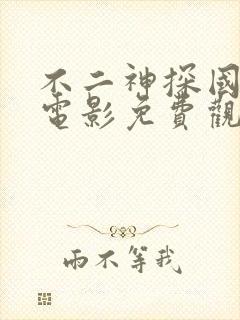 不二神探國
電影免費觀
雨不等我